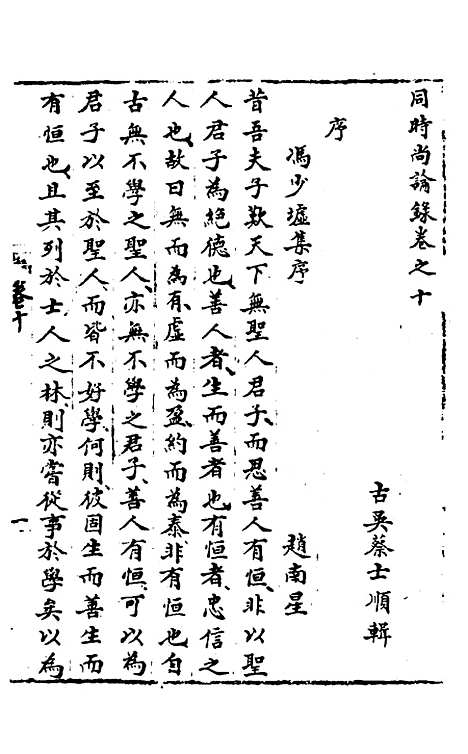 同時尚論錄卷之十
古吳蔡士順輯
序
馮少墟集序
趙南星
昔吾夫子歎天下無聖人君子而思善人有恒非以聖
人君子為絕德也善人者生而善者也有恒者忠信之
人也故曰無而為有虛而為盈約而為泰非有恒也自
古無不學之聖人亦無不學之君子善人有恒可以為
君子以至於聖人而皆不好學何則彼固生而善生而
有恒也且其列於士人之林則亦嘗從事於學矣以為
卷十
一